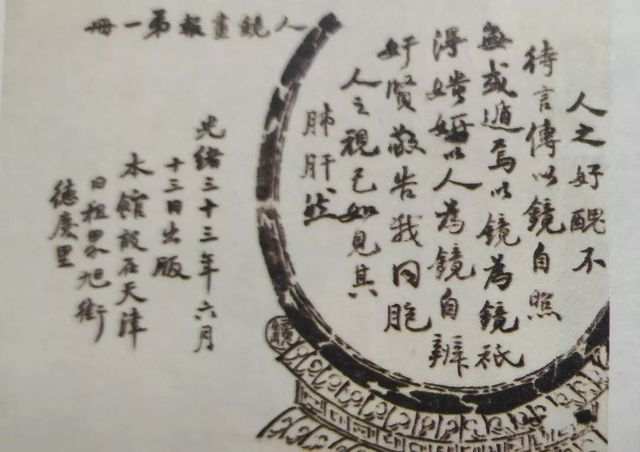 人鏡畫報第一冊
人之好醜不
待言傳以鏡自照
無或遁焉以鏡為鏡祇
得媸妍以人為鏡自辨
奸賢敬告我同胞
人之視己如見其
肺肝然
光緒三十三年六月
十三日出版
本館設在天津
日租界旭街
德慶里